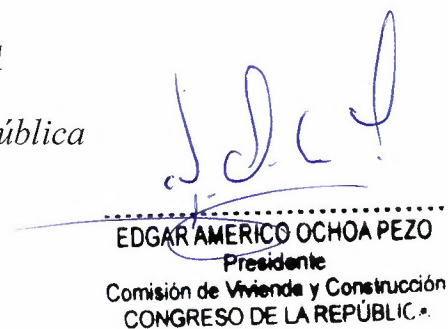 ública
EDGAR AMERICO OCHOA PEZO
Presidente
Comisión de Vivienda y Construcción
CONGRESO DE LA REPÚBLIC